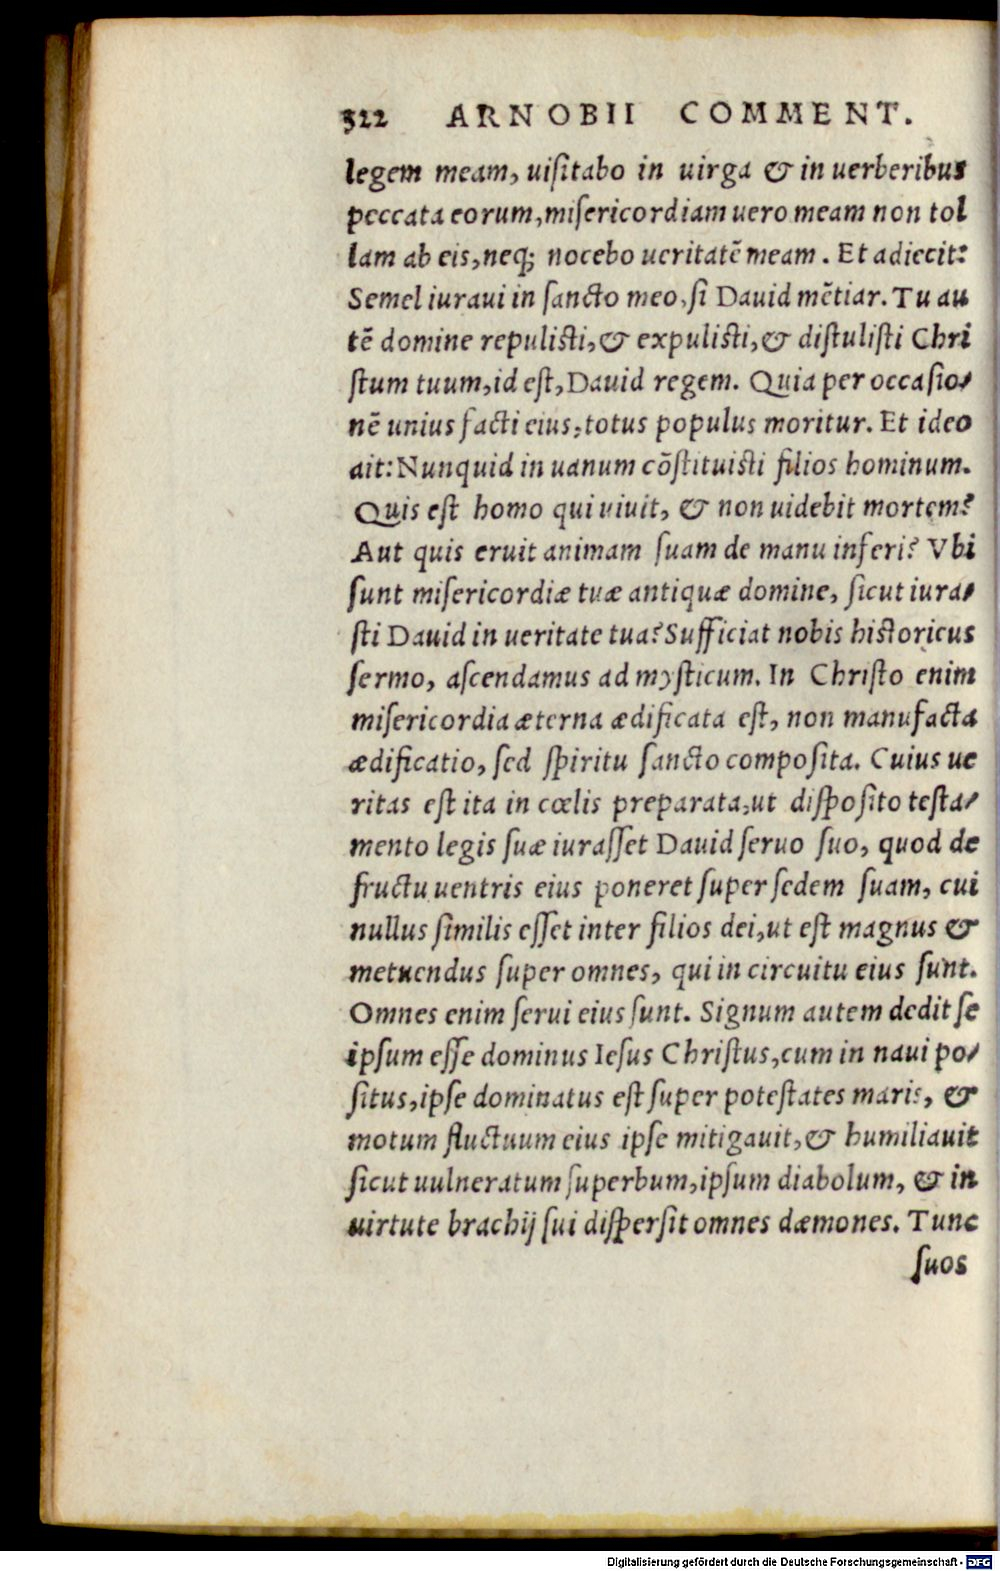 322 ARNOBII COMMENT.
legem meam, uiſitabo in uirga & in uerberibus
peccata eorum, miſericordiam uero meam non tol
lam ab eis, neq; nocebo ueritatē meam. Et adiecit:
Semel iuraui in ſancto meo, ſi Dauid mētiar. Tu au
tē domine repuliſti, & expuliſti, & diſtuliſti Chri
ſtum tuum, id eſt, Dauid regem. Quia per occaſio-
nē unius facti eius, totus populus moritur. Et ideo
ait: Nunquid in uanum cōſtituiſti filios hominum.
Quis eſt homo qui uiuit, & non uidebit mortem?
Aut quis eruit animam ſuam de manu inferi? Vbi
ſunt miſericordiæ tuæ antiquæ domine, ſicut iura-
ſti Dauid in ueritate tua? Sufficiat nobis hiſtoricus
ſermo, aſcendamus ad myſticum. In Chriſto enim
miſericordia æterna ædificata eſt, non manufacta
ædificatio, ſed ſpiritu ſancto compoſita. Cuius ue
ritas eſt ita in cœlis preparata, ut diſpoſito teſta-
mento legis ſuæ iuraſſet Dauid ſeruo ſuo, quod de
fructu uentris eius poneret ſuper ſedem ſuam, cui
nullus ſimilis eſſet inter filios dei, ut eſt magnus &
metuendus ſuper omnes, qui in circuitu eius ſunt.
Omnes enim ſerui eius ſunt. Signum autem dedit ſe
ipſum eſſe dominus Ieſus Chriſtus, cum in naui po-
ſitus, ipſe dominatus eſt ſuper poteſtates maris, &
motum fluctuum eius ipſe mitigauit, & humiliauit
ſicut uulneratum ſuperbum, ipſum diabolum, & in
uirtute brachij ſui diſperſit omnes dæmones. Tunc
ſuos
Digitalisierung gefördert durch die Deutsche Forschungsgemeinschaft - DFG